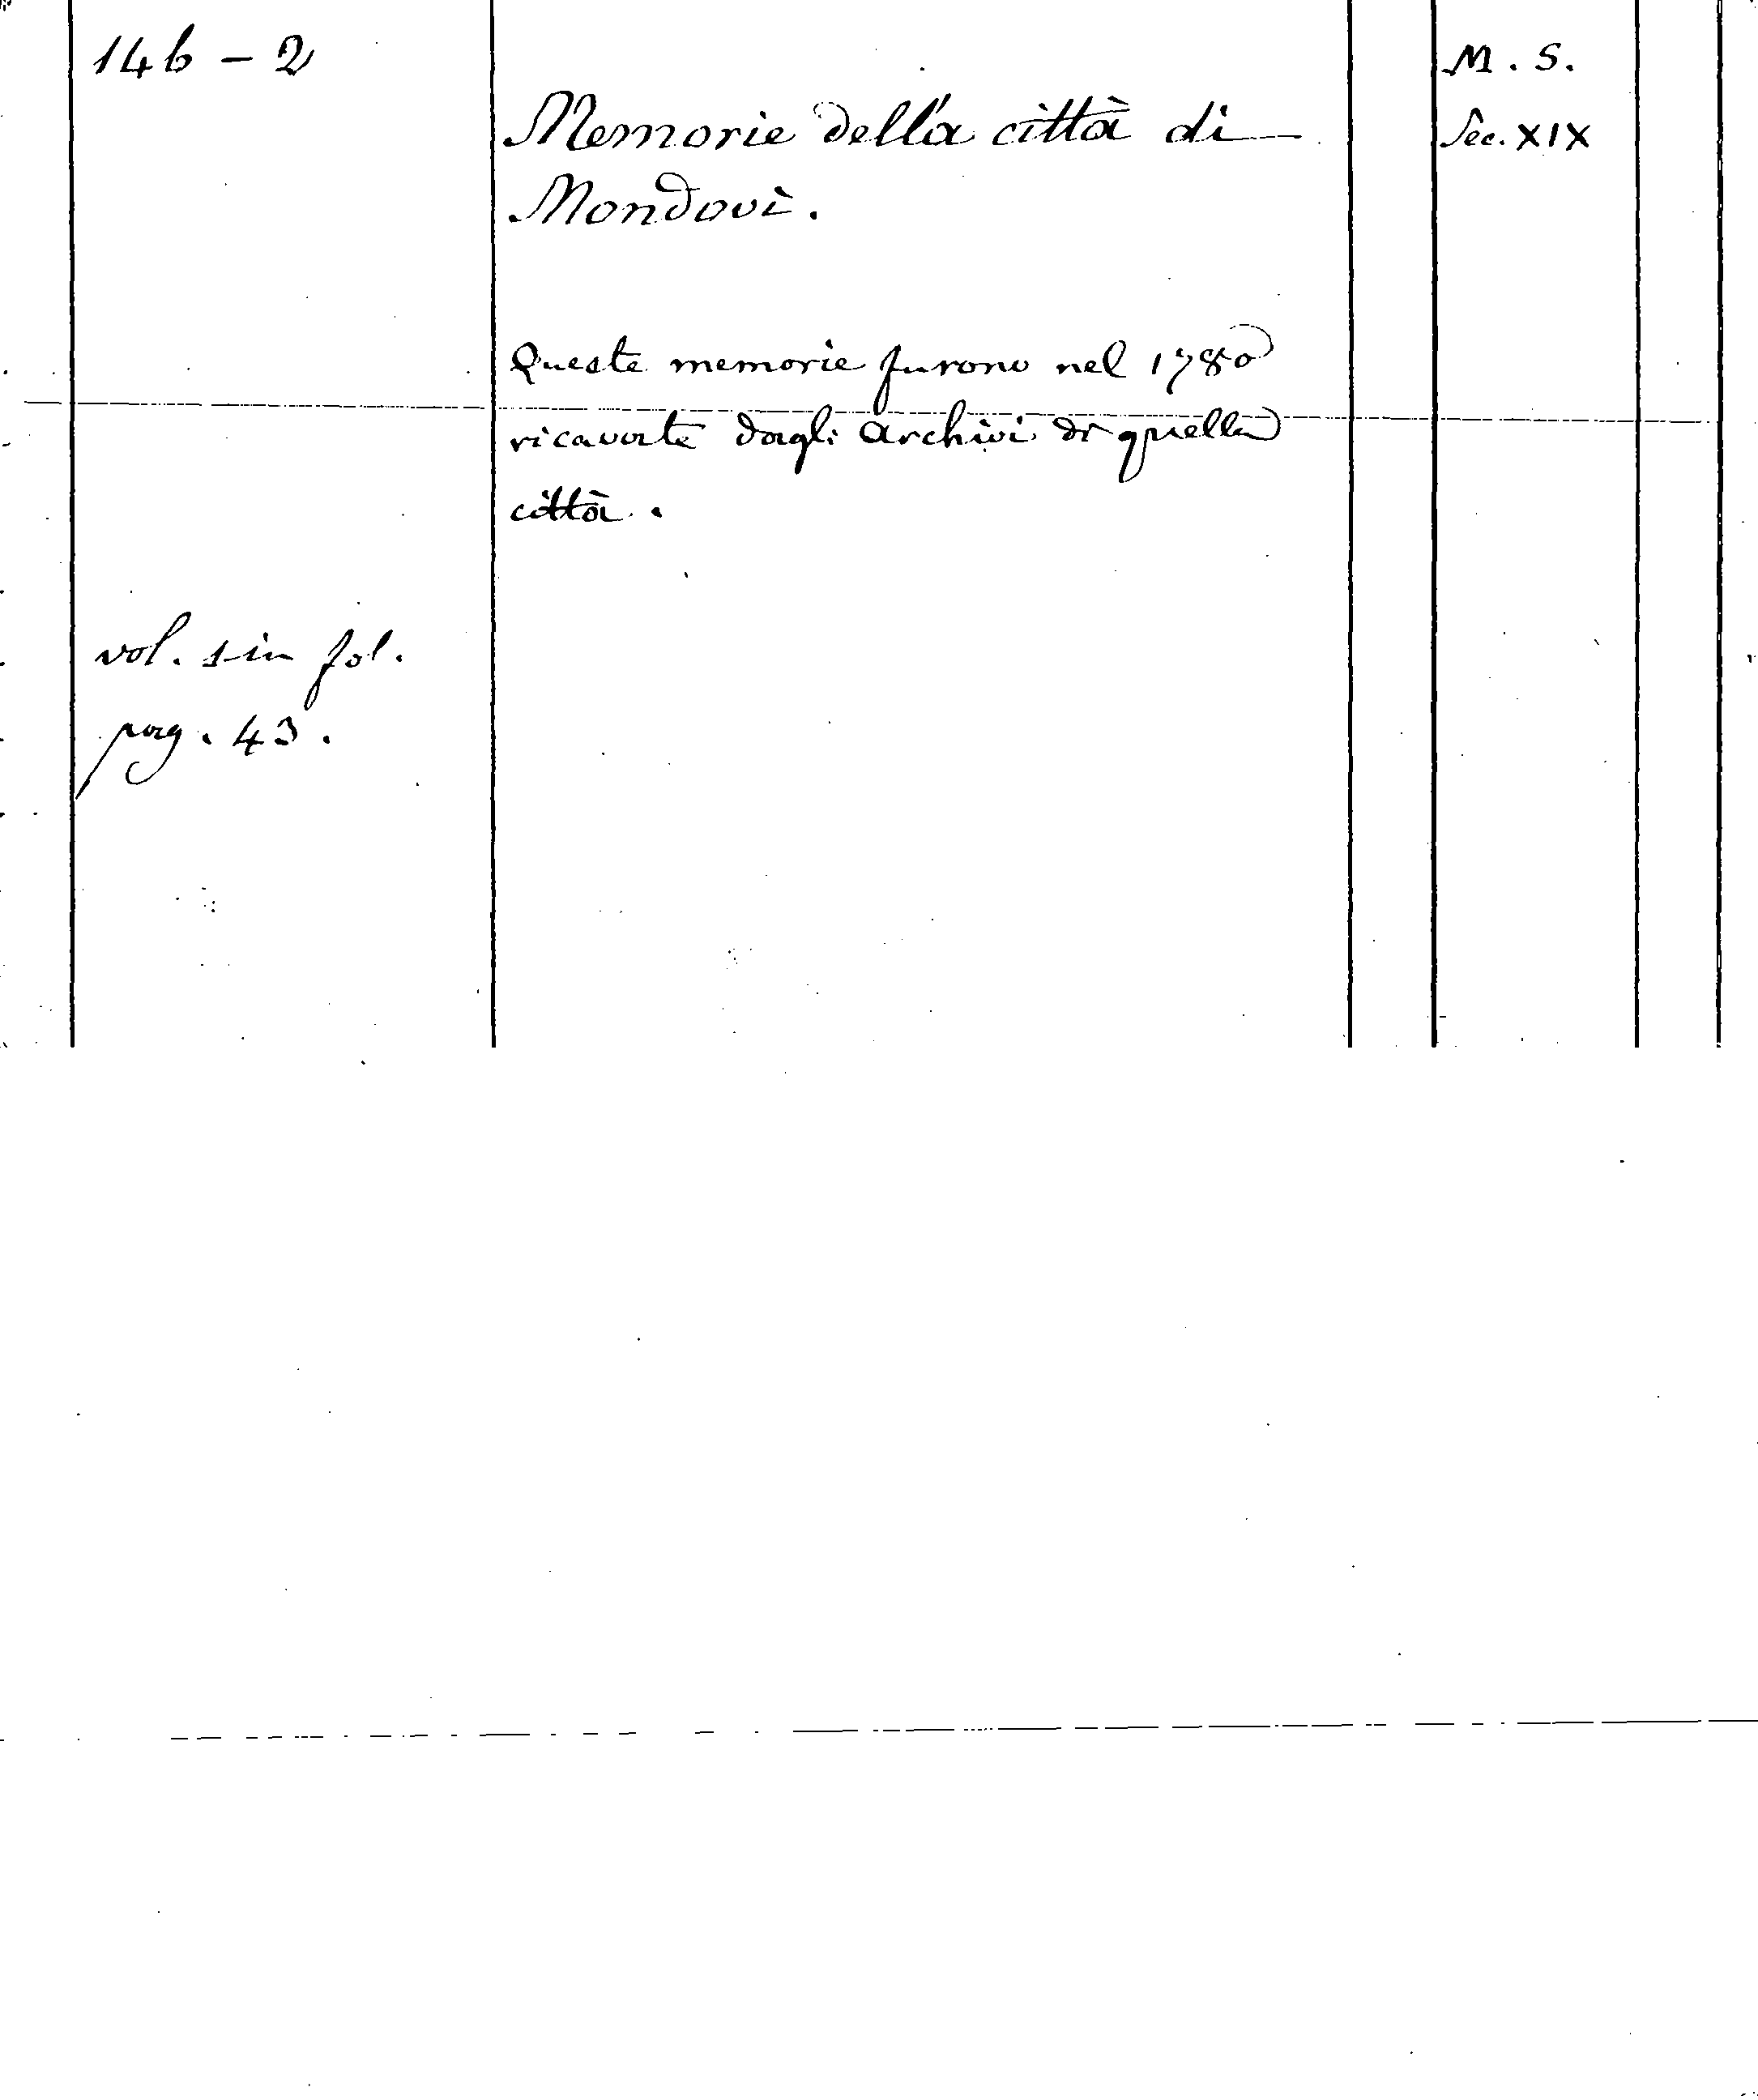 14b - 2
Memorie della città di
Mondovì.
Queste memorie furono nel 1780
ricavate dagli Archivi di quella
città.
vol. 1 in fol.
pag. 43.
M. S.
Sec. XIX